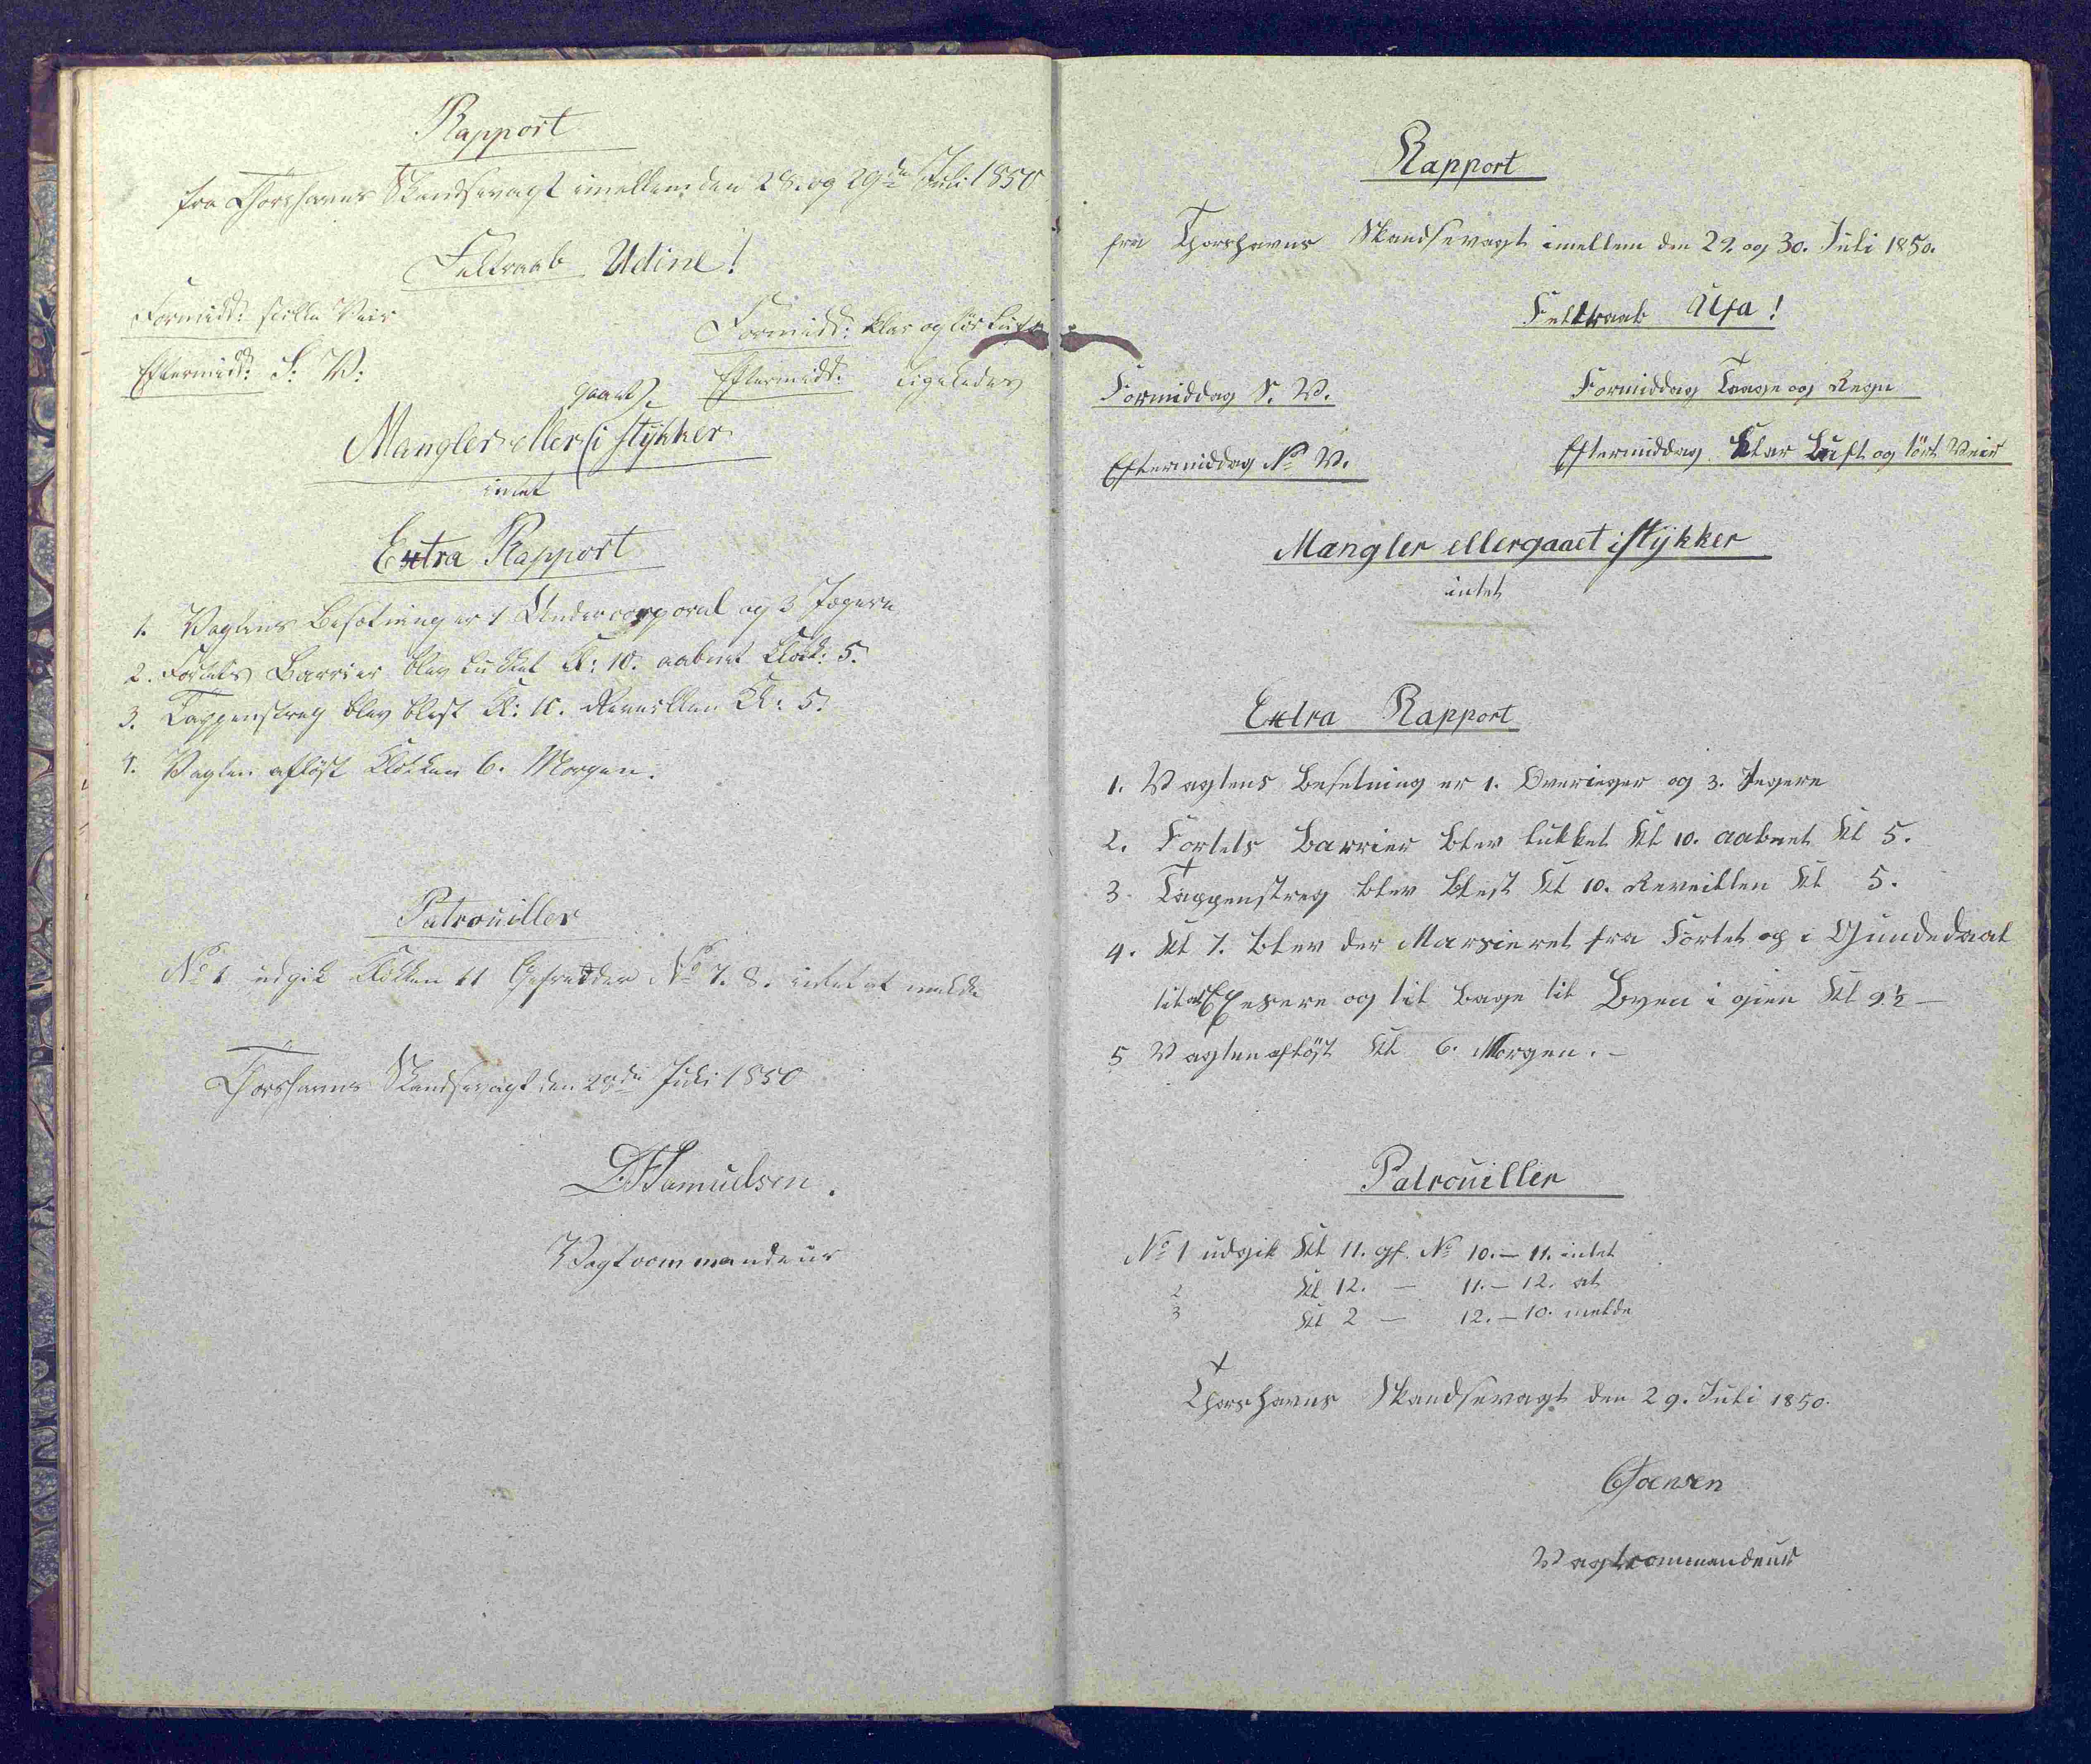 Rapport
fra Thorshavns Skandsevagt imellem den 28. og 29de Juli 1850
Feltraab Udine!
Formidd: stille Veir
Formidd: klar og tör Luft
Eftermidd: S: V:
Eftermidd: ligeledes
gaaet
Mangler eller i stÿkker
intet
Extra Rapport
1. Vagtens Besætning er 1 Undercorporal og 3 Jægere
2. Fortets Barrier blev lukket Kl: 10. aabnet Klokk: 5.
3. Tappenstreg blev blest Kl: 10. Reveillen Kl: 5.
4. Vagten aflöst Klokken 6. Morgen.
Patrouiller
No 1 udgik Klokken 11 Gefreider No 7. 8. intet at melde
Thorshavns Skandsevagt den 28de Juli 1850
Samuelsen.
Vagtcommandeur
Rapport
fra Thorshavns Skandsevagt imellem den 29. og 30. Juli 1850.
Feltraab Ulfa!
Formiddag S. V.
Formiddag Taage og Regn
Eftermiddag No V.
Eftermiddag Klar Luft og tört Veir
Mangler eller gaaet i stÿkker
intet
Extra Rapport
1. Vagtens Besetning er 1. Overieger og 3. Jegere
2. Fortets Barrier blev lukket Kl 10. aabnet Kl 5.
3. Tappenstreg blev blest Kl 10. Reveillen Kl 5.
4. Kl 7. blev der Marsieret fra Fortet op i Gundedaal
til at Exesere og til bage til Byen i gien Kl 9½ —
5 Vagten aflöst Kl 6. Morgen. —
Patrouiller
No 1 udgik Kl 11. gf. No 10. — 11. intet
2 Kl 12. — 11. — 12. at
3 Kl 2 — 12. — 10. melde
Thorshavns Skandsevagt den 29. Juli 1850.
Joensen
Vagtcommendeur